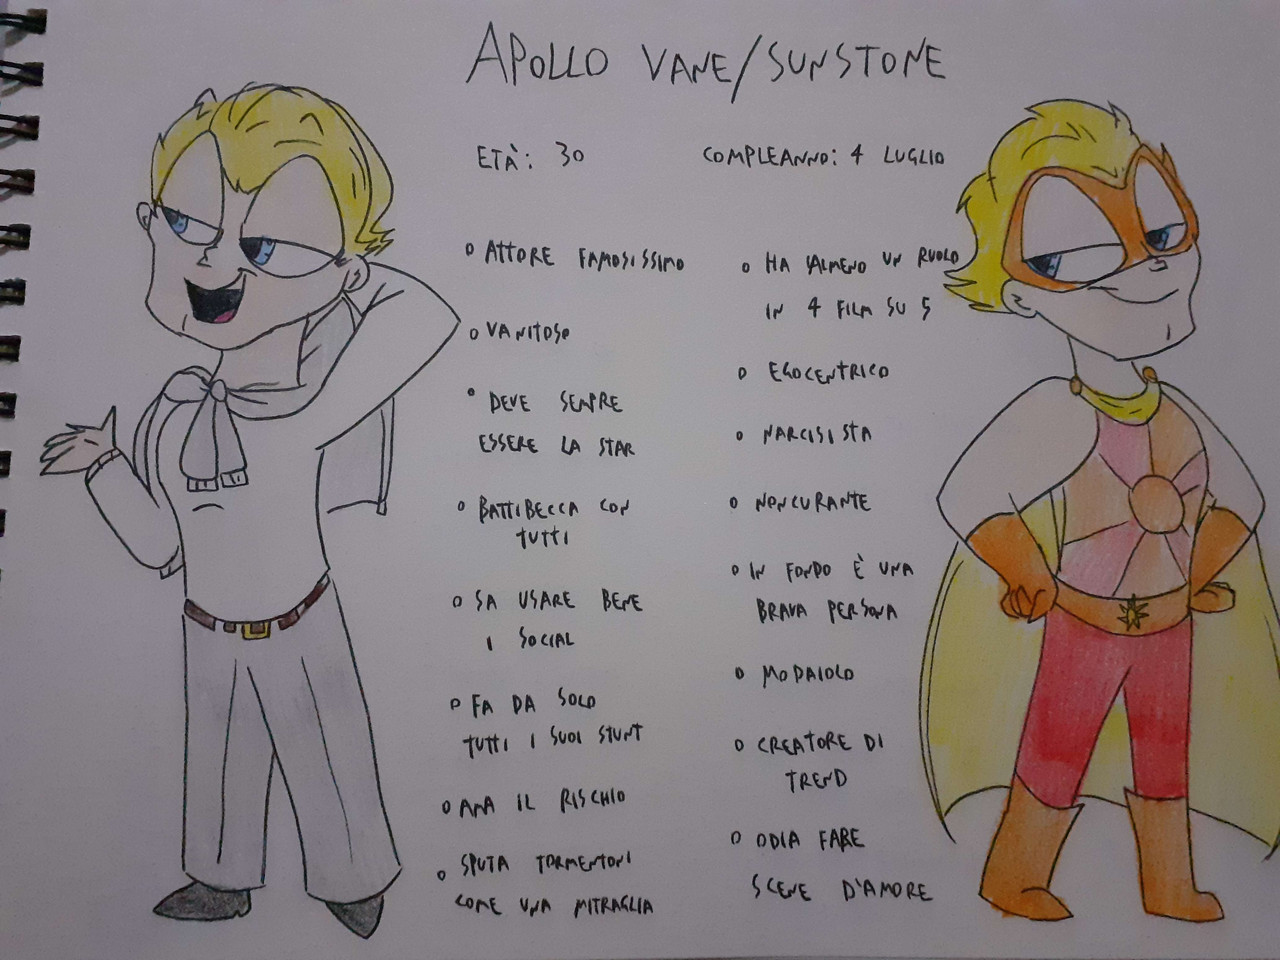 APOLLO VANE/SUNSTONE
ETÀ: 30
COMPLEANNO: 4 LUGLIO
o ATTORE FAMOSISSIMO
o VANITOSO
o DEVE SEMPRE
ESSERE LA STAR
o BATTIBECCA CON
TUTTI
o SA USARE BENE
I SOCIAL
o FA DA SOLO
TUTTI I SUOI STUNT
o AMA IL RISCHIO
o SPUTA TORMENTONI
COME UNA MITRAGLIA
o HA ALMENO UN RUOLO
IN 4 FILM SU 5
o EGOCENTRICO
o NARCISISTA
o NONCURANTE
o IN FONDO È UNA
BRAVA PERSONA
o MODAIOLO
o CREATORE DI
TREND
o ODIA FARE
SCENE D'AMORE